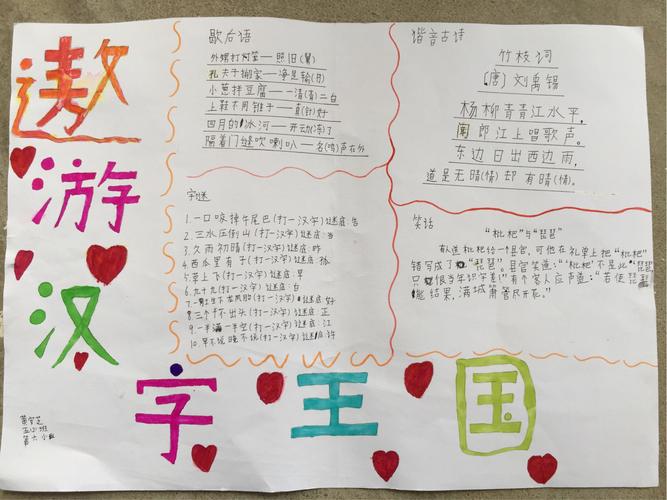 遨游汉
字王国
歇后语
外甥打灯笼——照旧(舅)
孔夫子搬家——净是输(书)
小葱拌豆腐——一清(青)二白
上鞋不用锥子——真(针)好
四月的冰河——开动(冻)了
隔着门缝吹喇叭——名(鸣)声在外
谐音古诗
竹枝词
(唐)刘禹锡
杨柳青青江水平,
闻郎江上唱歌声。
东边日出西边雨,
道是无晴(情)却有晴(情)。
字谜
1.一口咬掉牛尾巴(打一汉字)谜底:告
2.三水压倒山(打一汉字)谜底:当
3.久雨初晴(打一汉字)谜底:昨
4.西瓜里有子(打一汉字)谜底:孤
5.草上飞(打一汉字)谜底:早
6.九十九(打一汉字)谜底:白
(打一汉字)谜底:好
8.三个不出头(打一汉字)谜底:正
9.一半满一半空(打一汉字)谜底:江
10.早不说晚不说(打一汉字)谜底:许
笑话
"枇杷"与"琵琶"
有人送枇杷给一个县官,可他在礼单上把"枇杷"
错写成了"琵琶"。县官笑道:"'枇杷'不是此'琵琶'
只恨当年识字差!"有个客人应声道:"若使琵琶
能结果,满城箫管尽开花。"
五(2)班
第六小